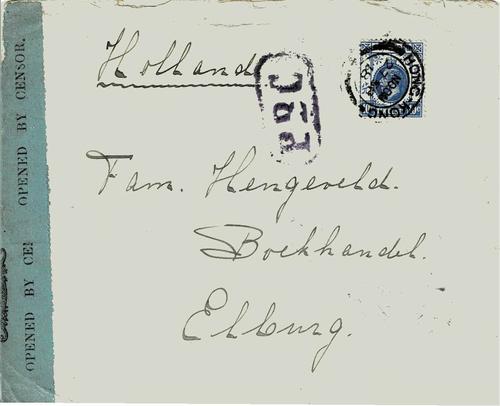 Holland
P2C
HONG KONG
Fam. Hengeveld.
Boekhandel.
Elburg.
OPENED BY CENSOR.
OPENED BY CE